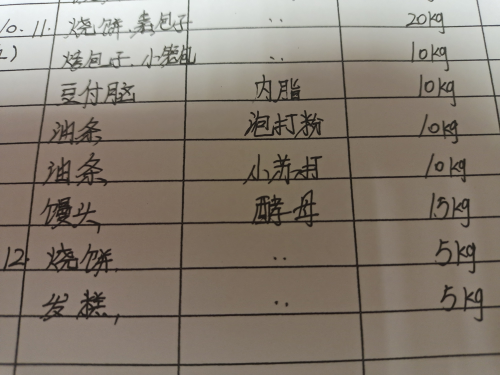 10.11. 烧饼.蒸包子 〃 20kg
2) 烤包子.小笼包 〃 10kg
豆付脑 内脂 10kg
油条 泡打粉 10kg
油条, 小苏打 10kg
馒头, 酵母 15kg
12. 烧饼, 〃 5kg
发糕, 〃 5kg